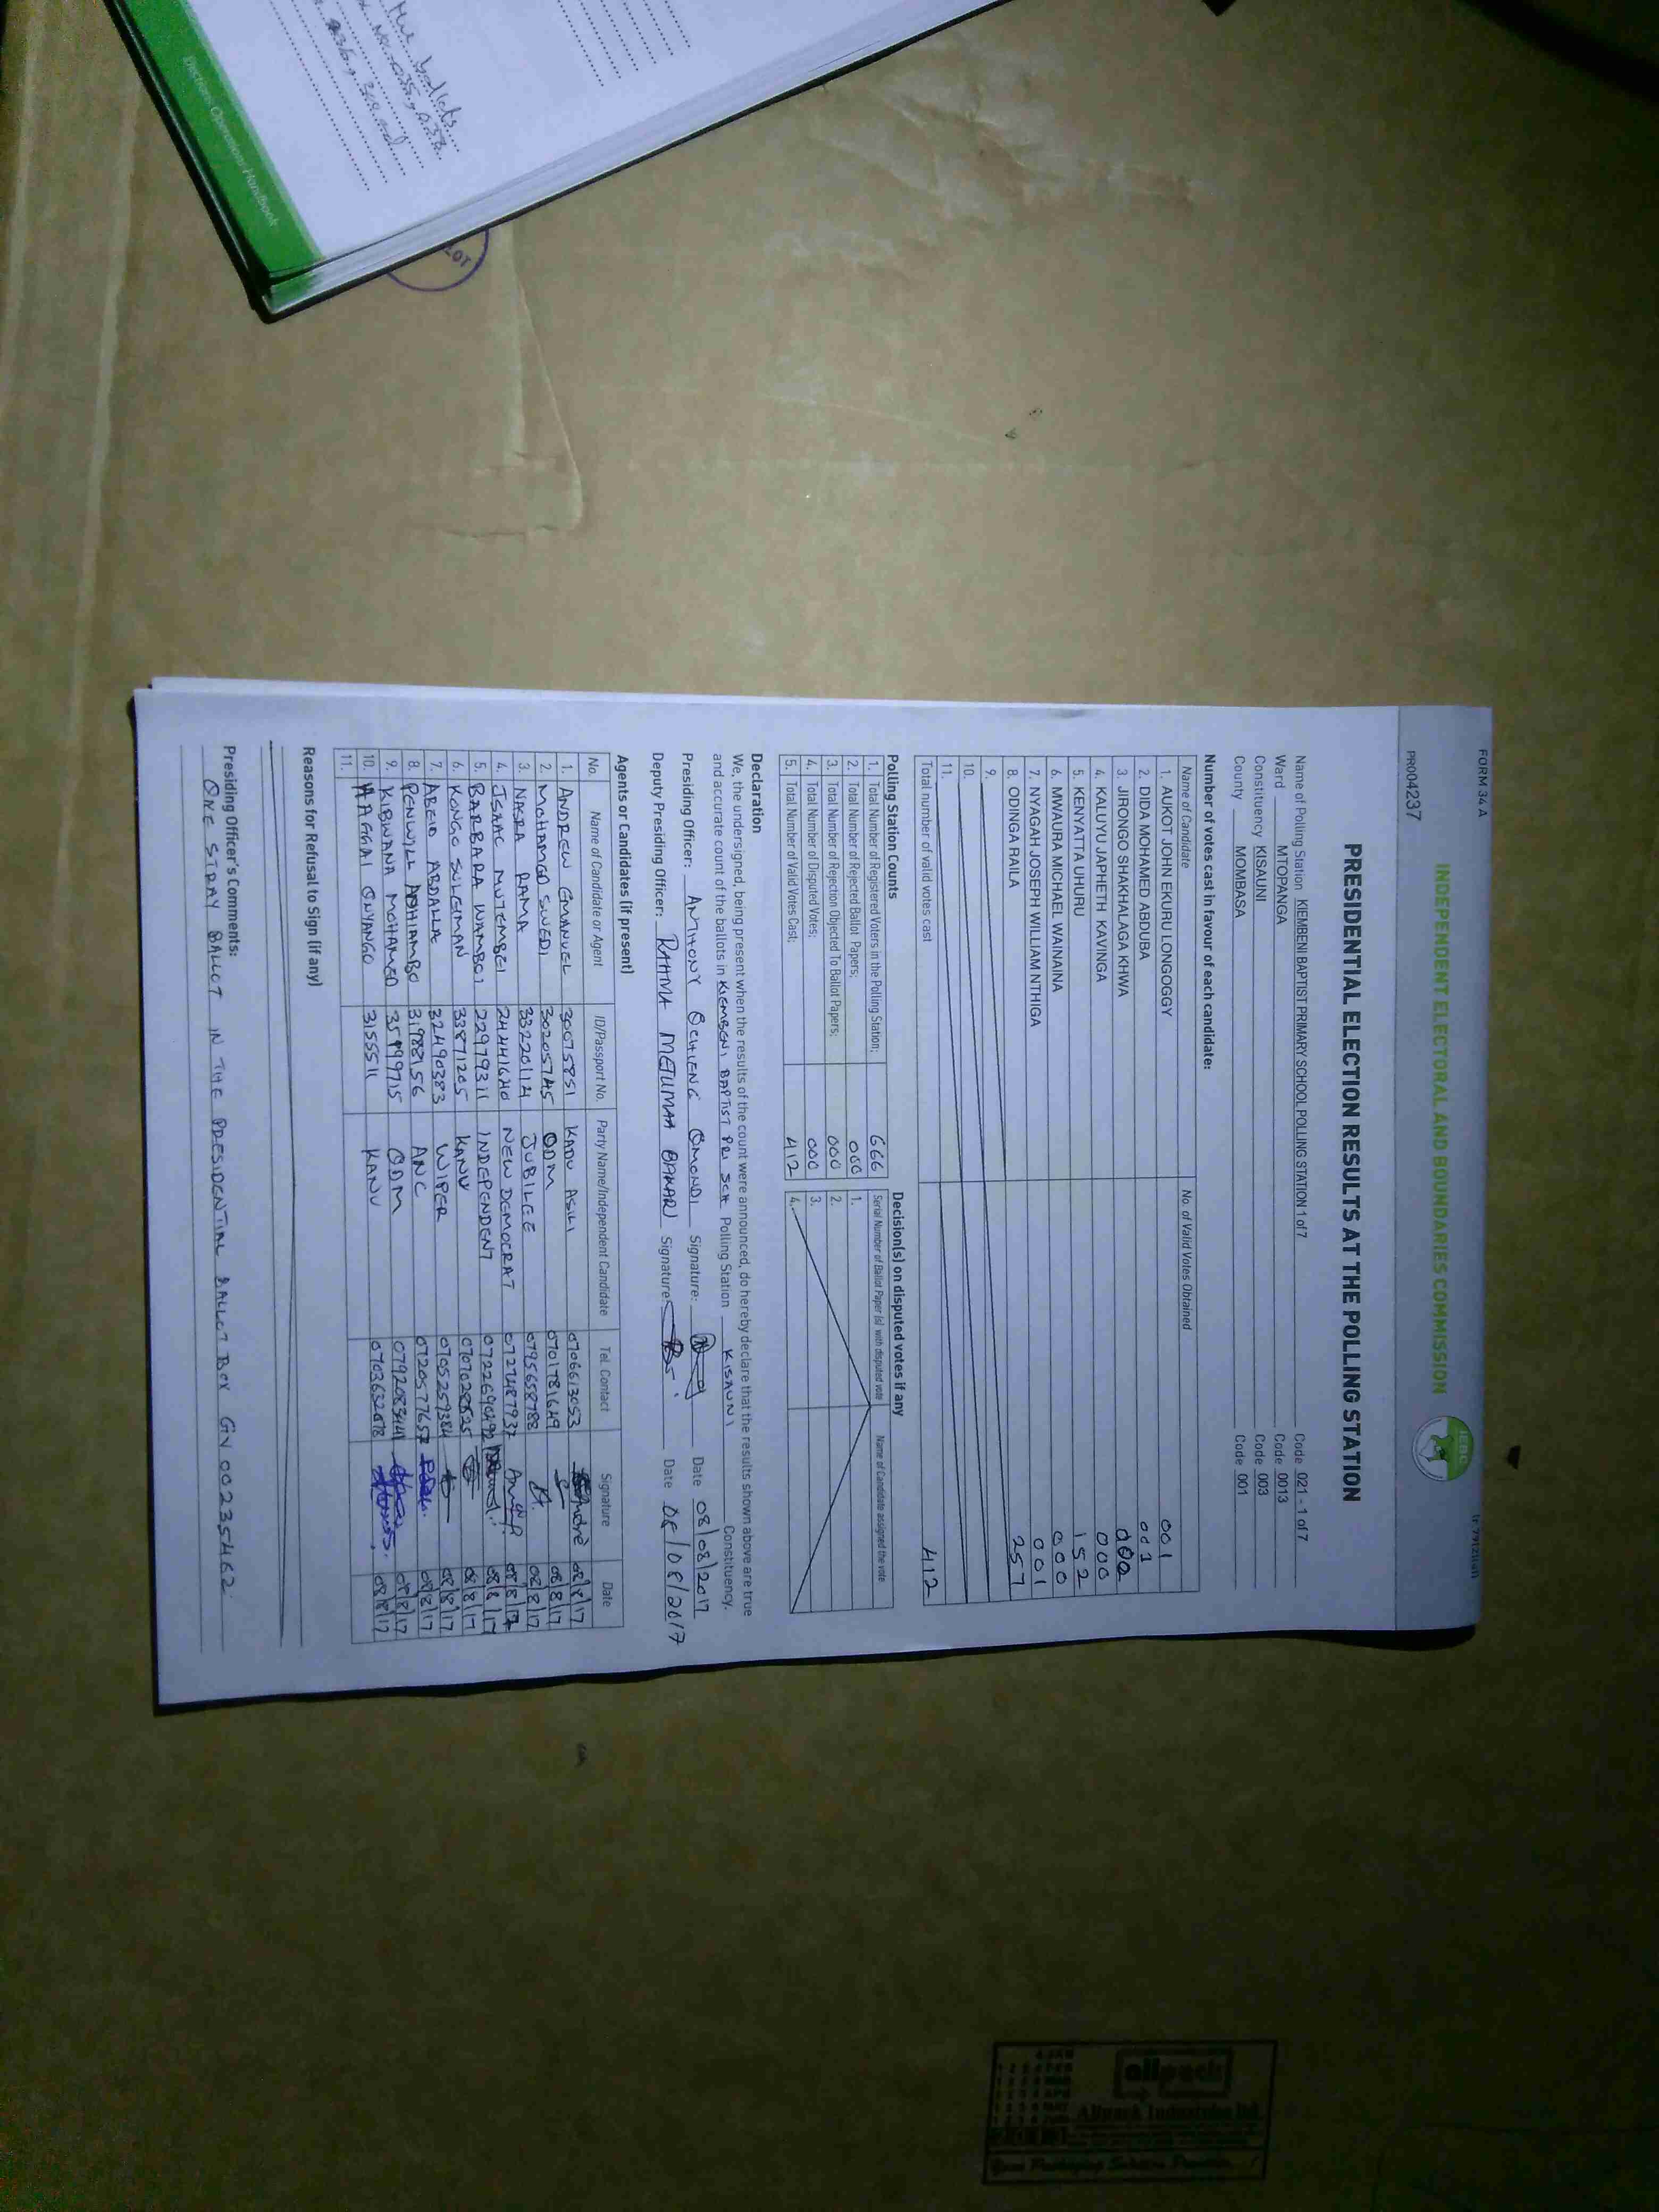 FORM 34 A
INDEPENDENT ELECTORAL AND BOUNDARIES COMMISSION
IEBC
PR004237
PRESIDENTIAL ELECTION RESULTS AT THE POLLING STATION
Name of Polling Station KIEMBENI BAPTIST PRIMARY SCHOOL POLLING STATION 1 of 7 Code 021 - 1 of 7
Ward MTOPANGA Code 0013
Constituency KISAUNI Code 003
County MOMBASA Code 001
Number of votes cast in favour of each candidate:
Name of Candidate No. of Valid Votes Obtained
1. AUKOT JOHN EKURU LONGOGGY 001
2. DIDA MOHAMED ABDUBA 001
3. JIRONGO SHAKHALAGA KHWA 000
4. KALUYU JAPHETH KAVINGA 000
5. KENYATTA UHURU 152
6. MWAURA MICHAEL WAINAINA 000
7. NYAGAH JOSEPH WILLIAM NTHIGA 001
8. ODINGA RAILA 257
9.
10.
11.
Total number of valid votes cast 412
Polling Station Counts
1. Total Number of Registered Voters in the Polling Station: 666
2. Total Number of Rejected Ballot Papers: 000
3. Total Number of Rejection Objected To Ballot Papers: 000
4. Total Number of Disputed Votes: 000
5. Total Number of Valid Votes Cast: 412
Decision(s) on disputed votes if any
Serial Number of Ballot Paper (s) with disputed vote Name of Candidate assigned the vote
1.
2.
3.
4.
Declaration
We, the undersigned, being present when the results of the count were announced, do hereby declare that the results shown above are true
and accurate count of the ballots in KIEMBENI BAPTIST PRI SCH Polling Station KISAUNI Constituency.
Presiding Officer: ANTHONY OCHIENG OMONDI Signature: Date 08/08/2017
Deputy Presiding Officer: RAHMA METUMAA BAKARI Signature: Date 08/08/2017
Agents or Candidates (if present)
No. Name of Candidate or Agent ID/Passport No. Party Name/Independent Candidate Tel. Contact Signature Date
1. ANDREW EMANUEL 30075851 KADU ASILI 0706613053 08/8/17
2. MOHAMED SWEDI 30205745 ODM 0701781649 08/8/17
3. NASRA RAMA 33220114 JUBILEE 0795658788 08/8/17
4. ISAAC MUTEMBEI 24441640 NEW DEMOCRAT 0727487937 08/8/17
5. BARBARA WAMBOI 22979311 INDEPENDENT 08/8/17
6. KONGO SULEIMAN 33871205 KANU 08/8/17
7. ABEID ABDALLA 32490383 WIPER 0705259384 08/8/17
8. PENWILL ADHIAMBO 31988156 ANC 0720577657 08/8/17
9. KIBWANA MOHAMED ODM 08/8/17
10. HAGGAI ONYANGO 3155511 KANU 08/8/17
11.
Reasons for Refusal to Sign (if any)
Presiding Officer's Comments:
ONE STRAY BALLOT IN THE PRESIDENTIAL BALLOT BOX GV 00235462
the ballots
Elections Operations Handbook
allpack
Allpack Industries ltd.